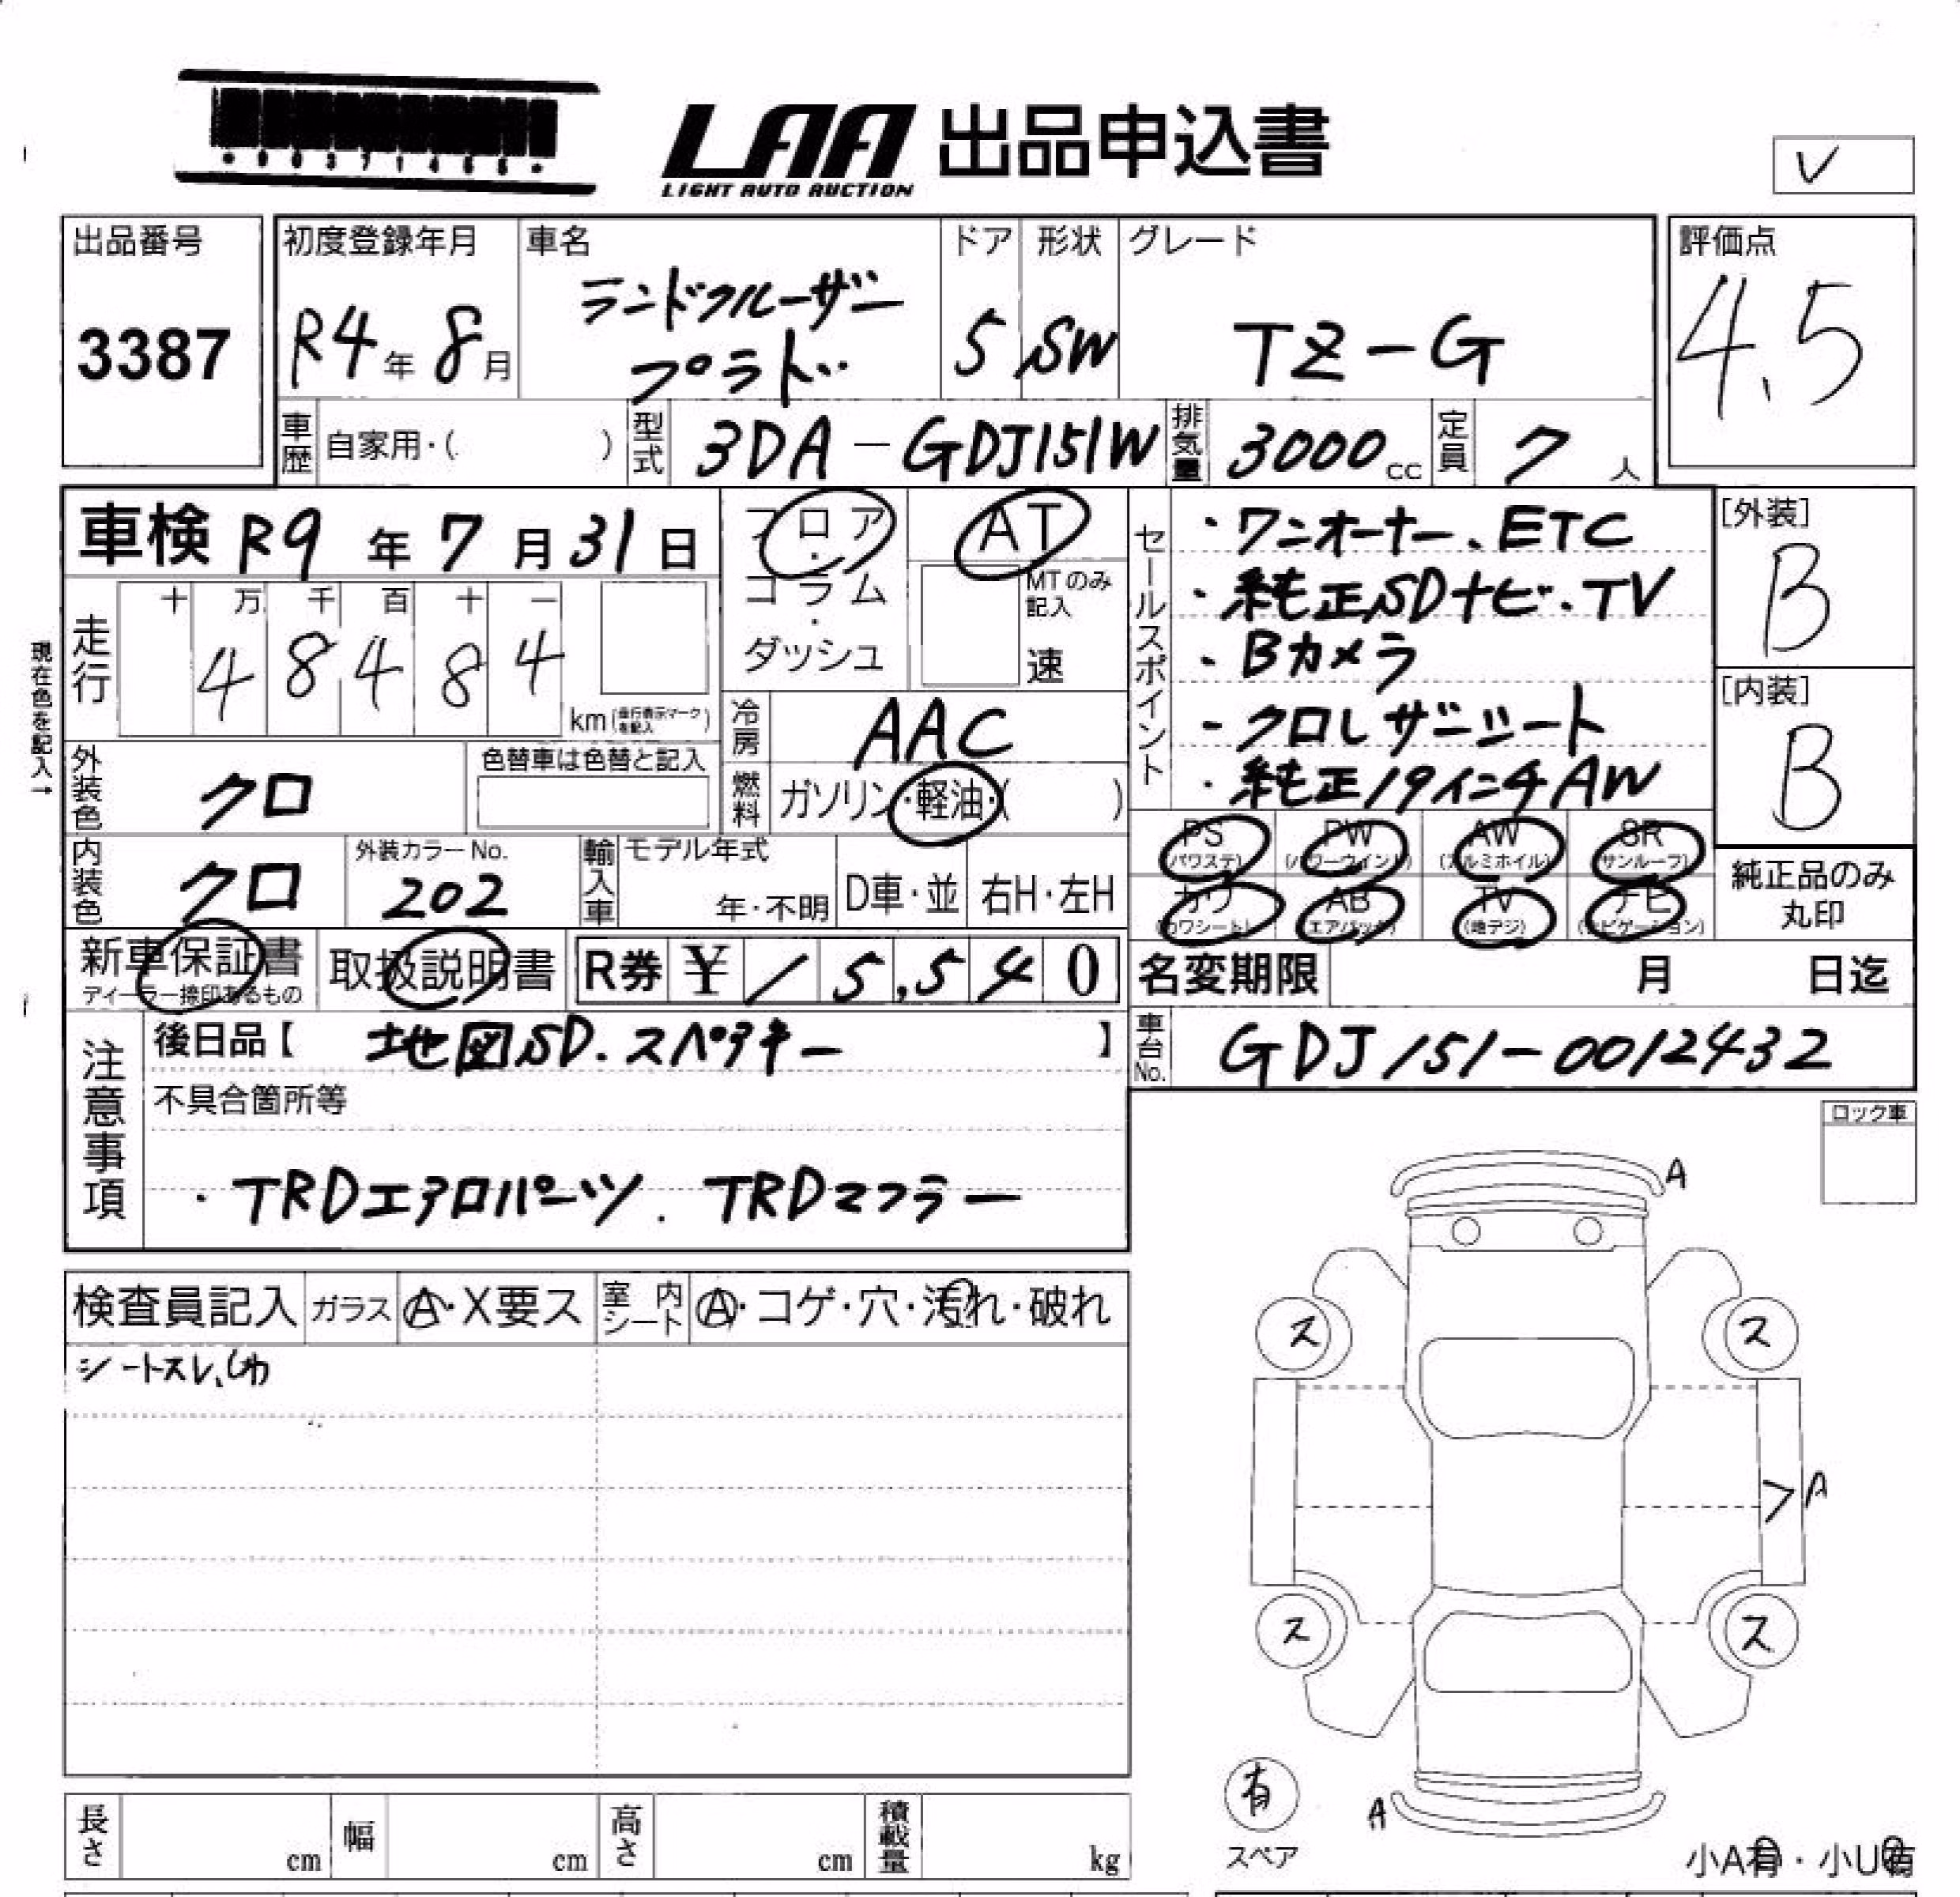 LAA 出品申込書
LIGHT AUTO AUCTION
V
出品番号
3387
初度登録年月
R4年 8月
車名
ランドクルーザー
プラド
ドア
5
形状
SW
グレード
TZ-G
評価点
4.5
車歴 自家用・( )
型式 3DA-GDJ151W
排気量 3000cc
定員 7人
車検 R9年 7月 31日
走行
十 万 千 百 十 一
4 8 4 8 4
km (走行表示マークを記入)
現在色を記入→
フロア・コラム・ダッシュ
AT
MTのみ記入
速
冷房 AAC
燃料 ガソリン・軽油・( )
外装色 クロ
色替車は色替と記入
内装色 クロ
外装カラーNo.
202
輸入車
モデル年式
年・不明
D車・並
右H・左H
セールスポイント
・ワンオーナー、ETC
・純正SDナビ・TV
・Bカメラ
・クロレザーシート
・純正19インチAW
[外装]
B
[内装]
B
PS (パワステ)
PW (パワーウインド)
AW (アルミホイル)
SR (サンルーフ)
カワ (カワシート)
AB (エアバック)
TV (地デジ)
ナビ (ナビゲーション)
純正品のみ
丸印
新車保証書
ディーラー捺印あるもの
取扱説明書
R券 ¥15,540
名変期限 月 日迄
車台No. GDJ151-0012432
注意事項
後日品【 地図SD.スペアキー 】
不具合箇所等
・TRDエアロパーツ. TRDマフラー
ロック車
検査員記入
ガラス A・X要ス
室内シート A・コゲ・穴・汚れ・破れ
シートスレ、シワ
A
ス ス
A
ス ス
有
スペア
A
小A有・小U有
長さ cm
幅 cm
高さ cm
積載量 kg